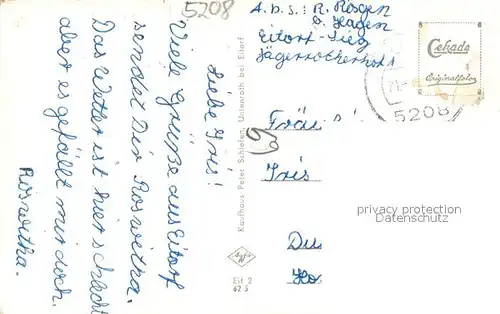 5208
Abs.: R. Rosen
Eitorf-Sieg
Cekade
Originalfoto
5208
Liebe Iris!
Viele Grüße aus Eitorf
sendet Dir Roswitha.
Das Wetter ist hier schlecht
aber es gefällt mir doch.
Roswitha.
Kaufhaus Peter Schiefen, Uhlenroth bei Eitorf
Agfa
Eit 2
62 S
Fräu
Iris
Du
privacy protection
Datenschutz